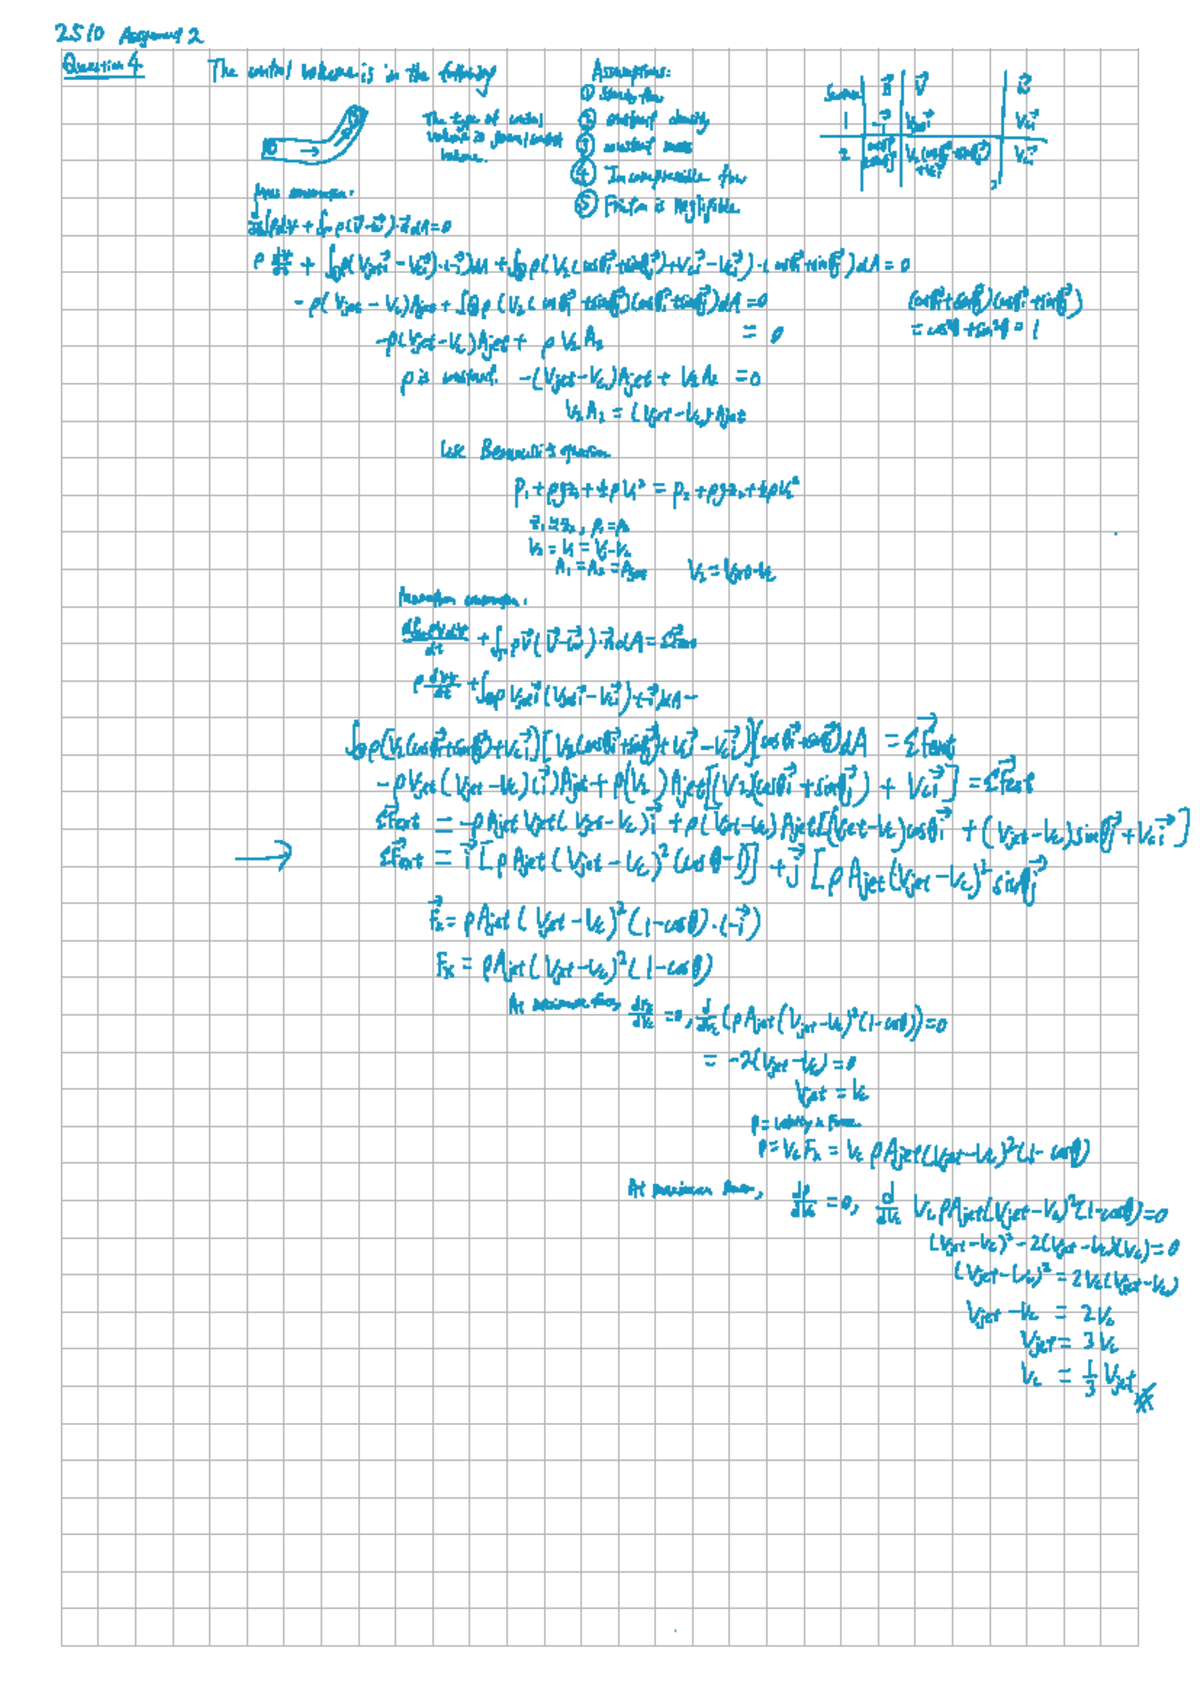 2510 Assignment 2
Question 4. The control volume is in the following
Assumptions:
① Steady flow
② constant density
③ constant mass
④ Incompressible flow
⑤ Friction is negligible.
The type of control
volume is
volume.
Mass conservation:
ρ dV/dt + ∫ ρ(V_jet i⃗ - V_c i⃗)·(-i⃗)dA + ∫ ρ(V₂(cosθi⃗+sinθj⃗)+V_c i⃗-V_c i⃗)·(cosθi⃗+sinθj⃗)dA = 0
-ρ(V_jet - V_c)A_jet + ∫ ρ(V₂(cosθi⃗+sinθj⃗)(cosθi⃗+sinθj⃗)dA = 0
(cosθi⃗+sinθj⃗)(cosθi⃗+sinθj⃗)
= cos²θ + sin²θ = 1
-ρ(V_jet-V_c)A_jet + ρV₂A₂ = 0
ρ is constant. -(V_jet-V_c)A_jet + V₂A₂ = 0
V₂A₂ = (V_jet-V_c)A_jet
Use Bernoulli's equation
P₁+ρgz₁+½ρV₁² = P₂+ρgz₂+½ρV₂²
V₂ = V₁ = V_j-V_c
A₁ = A₂ = A_jet V₂ = V_jet-V_c
Momentum conservation:
+ ∫ ρV⃗(V⃗-w⃗)·n⃗dA = ΣF⃗ext
+ ∫ ρV_jet i⃗(V_jet i⃗-V_c i⃗)(-i⃗)dA -
∫ ρ(V₂(cosθi⃗+sinθj⃗)+V_c i⃗)[V₂(cosθi⃗+sinθj⃗)+V_c i⃗-V_c i⃗)](cosθi⃗+sinθj⃗)dA = ΣF⃗ext
-ρV_jet(V_jet-V_c)(i⃗)A_jet + ρ(V₂)A_jet[(V₂)(cosθi⃗+sinθj⃗) + V_c i⃗] = ΣF⃗ext
ΣF⃗ext = -ρA_jet V_jet(V_jet-V_c)i⃗ + ρ(V_jet-V_c)A_jet[(V_jet-V_c)cosθi⃗ + (V_jet-V_c)sinθj⃗+V_c i⃗]
→ ΣF⃗ext = i⃗[ρA_jet(V_jet-V_c)²(cosθ-1)] + j⃗[ρA_jet(V_jet-V_c)²sinθj⃗
F⃗x = ρA_jet(V_jet-V_c)²(1-cosθ)·(-i⃗)
Fx = ρA_jet(V_jet-V_c)²(1-cosθ)
At maximum force, dFx/dV_c = 0, d/dV_c (ρA_jet(V_jet-V_c)²(1-cosθ)) = 0
= -2(V_jet-V_c) = 0
V_jet = V_c
P = velocity x Force
P = V_c Fx = V_c ρA_jet(V_jet-V_c)²(1-cosθ)
At maximum power, dP/dV_c = 0, d/dV_c V_c ρA_jet(V_jet-V_c)²(1-cosθ) = 0
(V_jet-V_c)² - 2(V_jet-V_c)(V_c) = 0
(V_jet-V_c)² = 2V_c(V_jet-V_c)
V_jet - V_c = 2V_c
V_jet = 3V_c
V_c = 1/3 V_jet